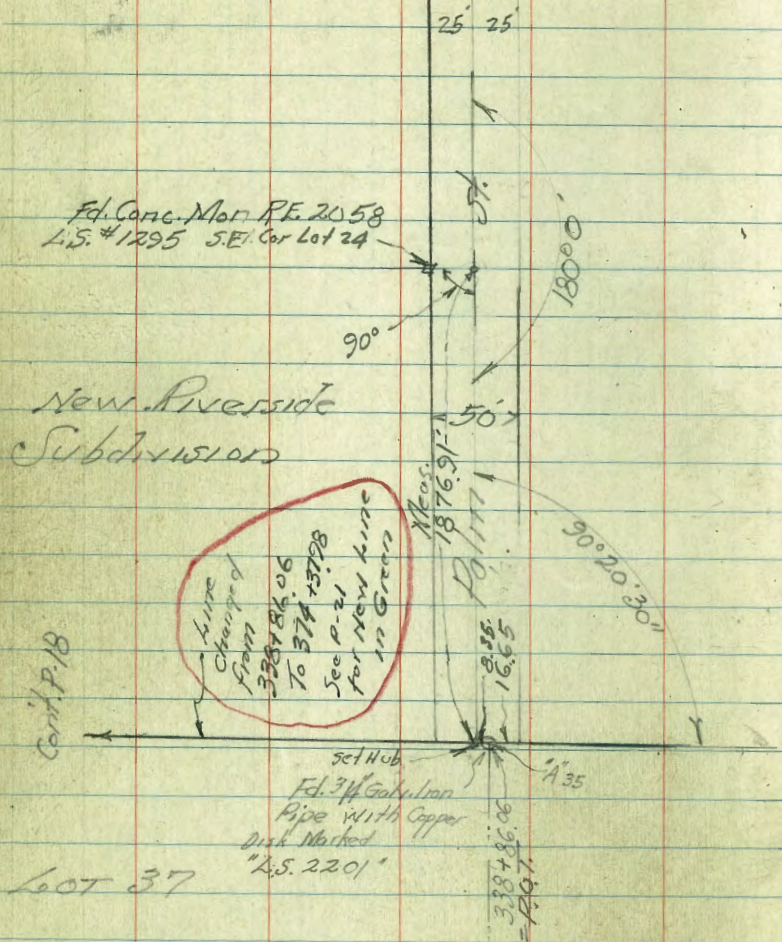 25' 25'
St.
Fd. Conc. Mon R.E. 2058
L.S. #1295 S.E. Cor Lot 24
180°0'
90°
New Riverside
Subdivision
50'
Meas.
1876.91
Palm
90°20'30"
Line
changed
From
338+86.06
To 374+37.98
See P-21
for New Line
in Green
8.35
16.65
Cont. P.18
Set Hub
"A"35
Fd. 3/4" Galv. Iron
Pipe with Copper
Disk Marked
"L.S. 2201"
LOT 37
338+86.06
= P.O.T.